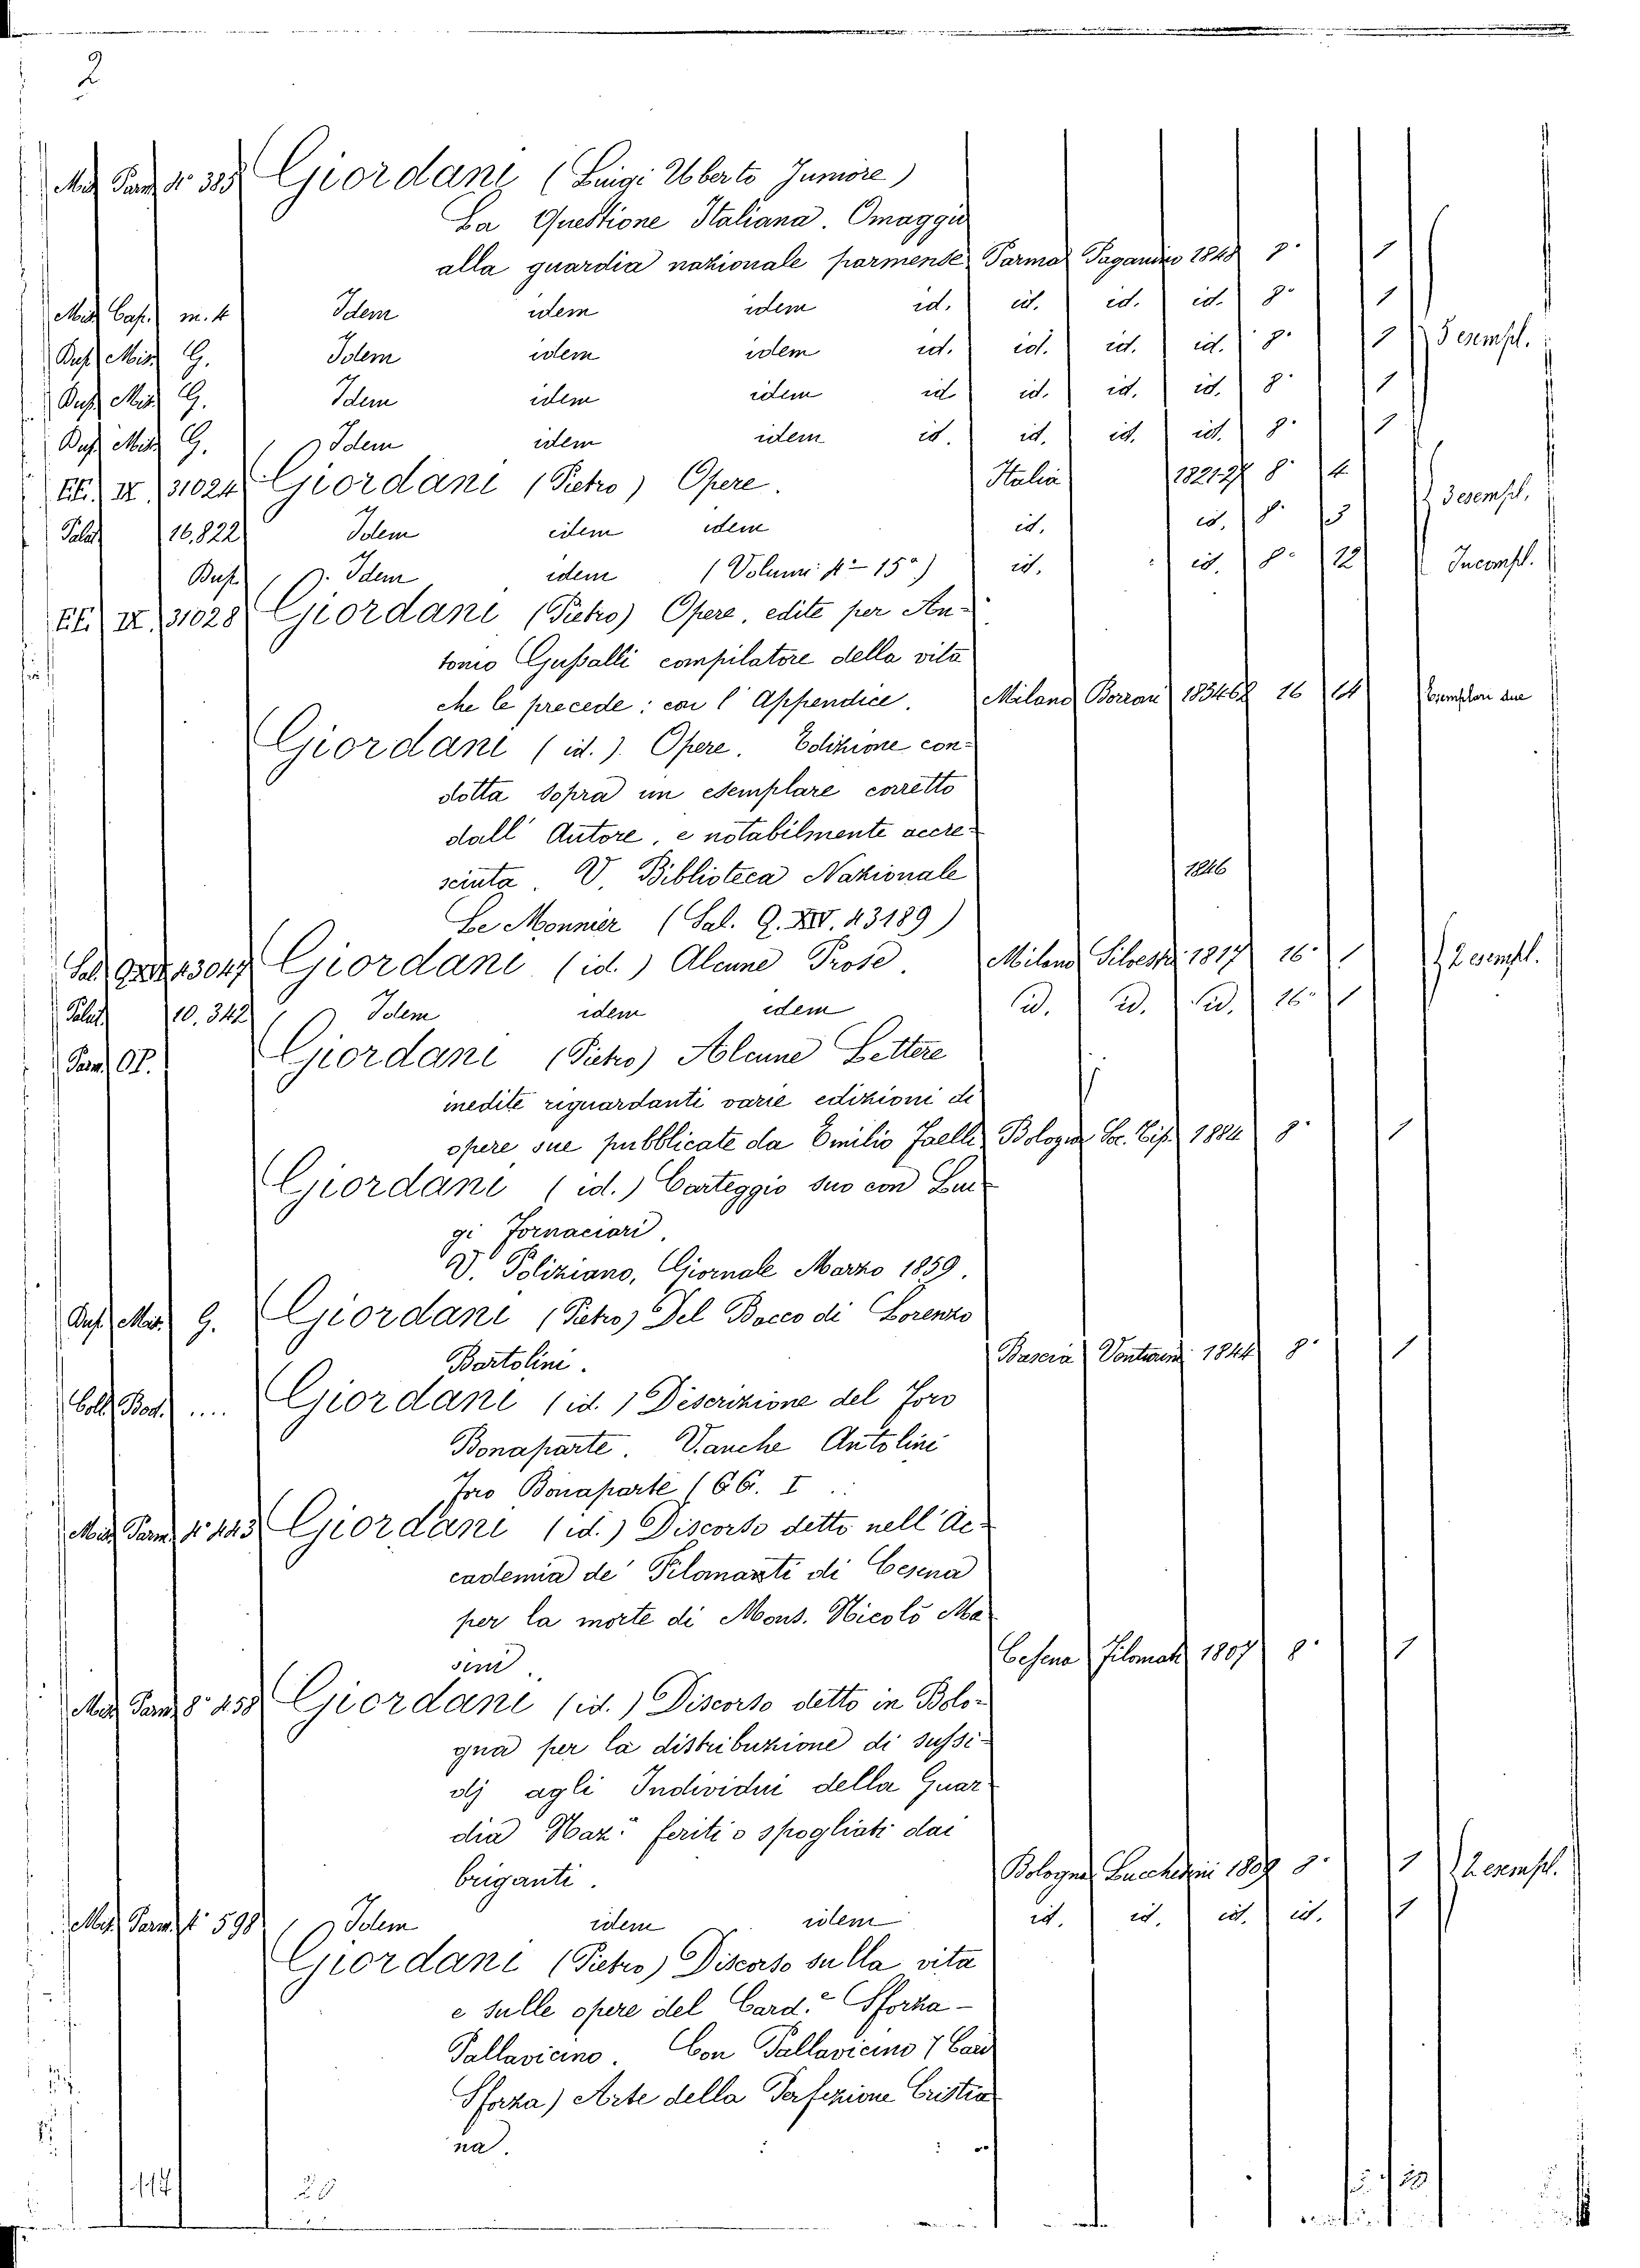 2
Giordani (Luigi Uberto Juniore)
La Questione Italiana. Omaggio
alla guardia nazionale parmense Parma Paganino 1848 8° 1
m. 4 Idem idem idem id. id. id. id. 8° 1
Misc. G. Idem idem idem id. id. id. id. 8° 1 5 esempl.
Misc. G. Idem idem idem id id. id. id. 8° 1
Misc. G. Idem idem idem id. id. id. id. 8° 1
IX 31024 Giordani (Pietro) Opere. Italia 1821-27 8° 14
Palat. 16,822 Idem idem idem id. id. 8°
Idem idem (Volumi 4°-15°) id. id. 8° 12 Incompl.
IX 31028 Giordani (Pietro) Opere, edite per An-
tonio Gussalli compilatore della vita
che le precede: con l'Appendice. Milano Borroni 16 14 Esemplari due
Giordani (id.). Opere. Edizione con-
dotta sopra un esemplare corretto
dall'Autore, e notabilmente accre-
sciuta. V. Biblioteca Nazionale 1846
Le Monnier (Sal. Q. XIV. 43189)
Giordani (id.) Alcune Prose. Milano Silvestri 1817 16° 1 2 esempl.
Palat. 10.342 Idem idem idem id. id. id. 16° 1
Parm. Giordani (Pietro) Alcune Lettere
inedite riguardanti varie edizioni di
opere sue pubblicate da Emilio Faelli Bologna Soc. Tip. 1884 8° 1
Giordani (id.) Carteggio suo con Lui-
gi Fornaciari.
V. Poliziano, Giornale Marzo 1859.
G. Giordani (Pietro) Del Bacco di Lorenzo
Bartolini. 1844 8° 1
.... Giordani (id.) Descrizione del Foro
Bonaparte. V. anche Antolini
Foro Bonaparte (66. I
Giordani (id.) Discorso detto nell'Ac-
cademia de' Filomanti di Cesena
per la morte di Mons. Nicolò Ma
sini. Cesena Filomati 1807 8° 1
Giordani (id.) Discorso detto in Bolo-
gna per la distribuzione di sussi-
dj agli Individui della Guar
dia Naz. feriti o spogliati dai
briganti. Bologna Lucchesini 1809 8° 1 2 esempl.
598 Idem idem idem id. id. id. id. 1
Giordani (Pietro) Discorso sulla vita
e sulle opere del Card.e Sforza-
Pallavicino. Con Pallavicino (Card
Sforza) Arte della Perfezione Cristia
na.